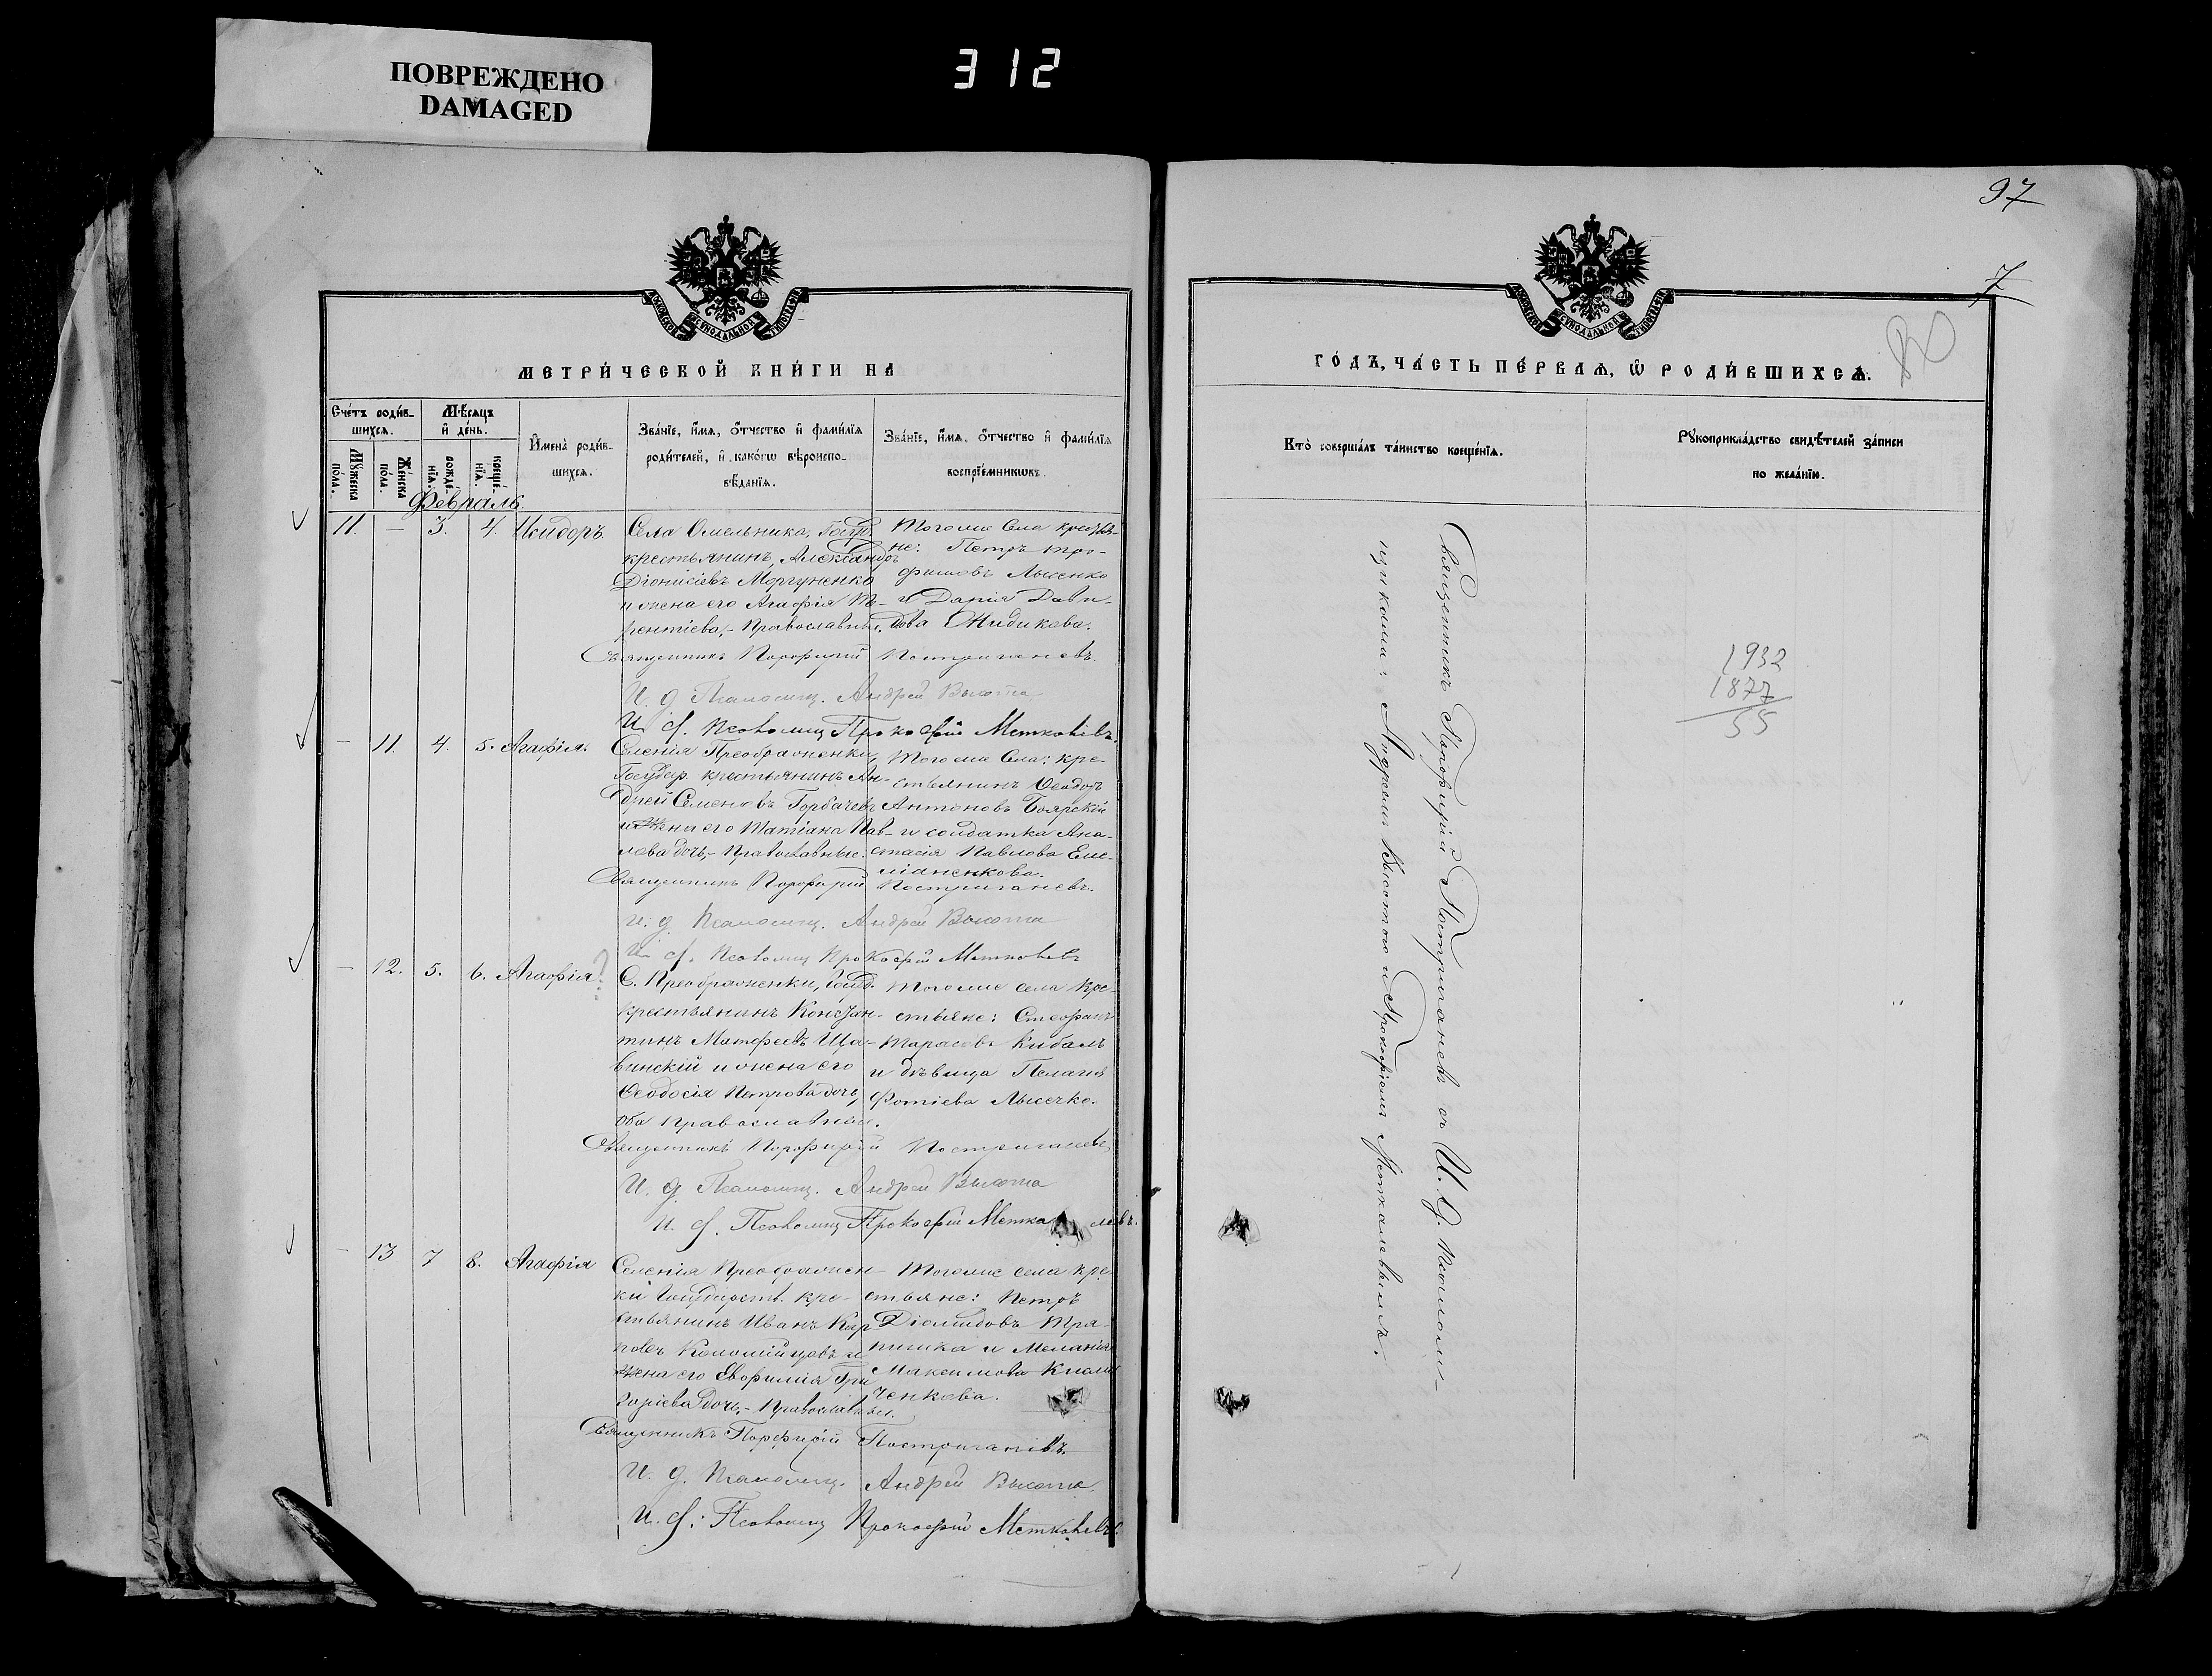 ПОВРЕЖДЕНО
DAMAGED
312
97
7
МЕТРИ́ЧЕСКОЙ КНИ́ГИ НА
Сче́тъ роди́в-
шихсѧ.
Мѣ́сѧцъ
и҆ де́нь.
Мꙋ́жеска
по́ла.
Же́нска
по́ла.
рожде́-
нїѧ.
креще́-
нїѧ.
И҆мена̀ роди́в-
шихсѧ.
Зва́нїе, и҆́мѧ, ѻ҆́тчество и҆ фами́лїѧ
роди́телей, и҆ како́гѡ вѣроиспо-
вѣ́данїѧ.
Зва́нїе, и҆́мѧ, ѻ҆́тчество и҆ фами́лїѧ
воспрїе́мникѡвъ.
Февраль
11. — 3. 4. Исидоръ.
Села Омельника, Госуд.
крестьянинъ, Александръ
Діонисіевъ Моргуненко
и жена его Агафія Те-
рентіева,- Православные.
Тогоже Села крестья-
не: Петръ Тро-
фимовъ Лысенко
и Дарія Дави-
дова Жидикова.
Священникъ Порфирій Постригачевъ.
И. д. Псаломщ. Андрей Высота
И. д. Псаломщ Прокофій
— 11. 4. 5. Агафія.
Селенія Преображенки,
Государ. крестьянинъ Ан-
дрей Семеновъ Горбачевъ
и жена его Татіана Пав-
лова дочь,- Православные.
Тогоже Села: кре-
стьянинъ Ѳеодоръ
Антоновъ Боярскій
и солдатка Ана-
стасія Павлова Еме-
ліаненкова.
Священникъ Порфирій Постригачевъ.
И. д. Псаломщ. Андрей Высота
И. д. Псаломщ Прокофій
— 12. 5. 6. Агафія?
С. Преображенки, Госуд.
крестьянинъ Констан-
тинъ Матфеевъ Ща-
винскій и жена его
Ѳеодосія Петрова дочь,
оба православные.
Тогоже села кре-
стьяне: Стефанъ
Тарасовъ Кибаль
и дѣвица Пелагія
Фотіева Лысечко.
Священникъ Порфирій Постригачевъ
И. д. Псаломщ. Андрей Высота
И. д. Псаломщ Прокофій
— 13 7 8. Агафія
Селенія Преображен-
ки Государств. кре-
стьянинъ Иванъ Кар-
повъ Коломійцевъ и
жена его Евфимія Гри-
горіева дочь,- Православные.
Тогоже села кре-
стьяне: Петръ
Діомидовъ Тра-
пичка и Меланія
Максимова
ченкова.
Священникъ Порфирій Постригачевъ.
И. д. Псаломщ. Андрей Высота.
И. д. Псаломщ Прокофій
ГО́ДЪ, ЧА́СТЬ ПЕ́РВАѦ, Ѡ҆ РОДИ́ВШИХСѦ.
Кто̀ соверша́лъ та́инство креще́нїѧ.
Рꙋкоприкла́дство свидѣ́телей за́писи
по жела́нїю.
Священникъ Порфирій Постригачевъ съ И. д. псалом-
щиками: Андреемъ Высотою и Прокофіемъ
1932
1877
55